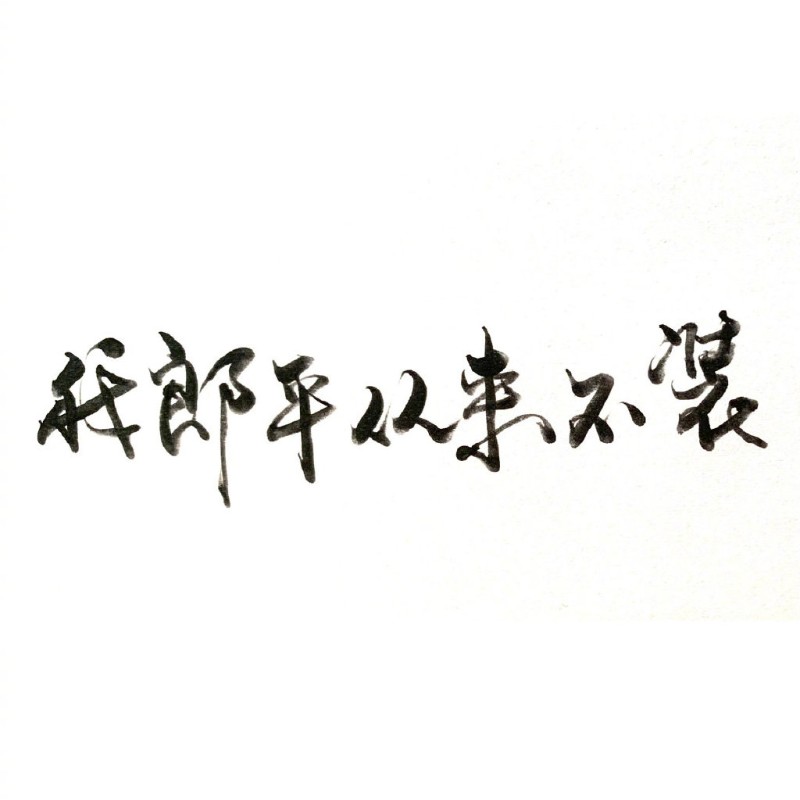 我郎平从来不装